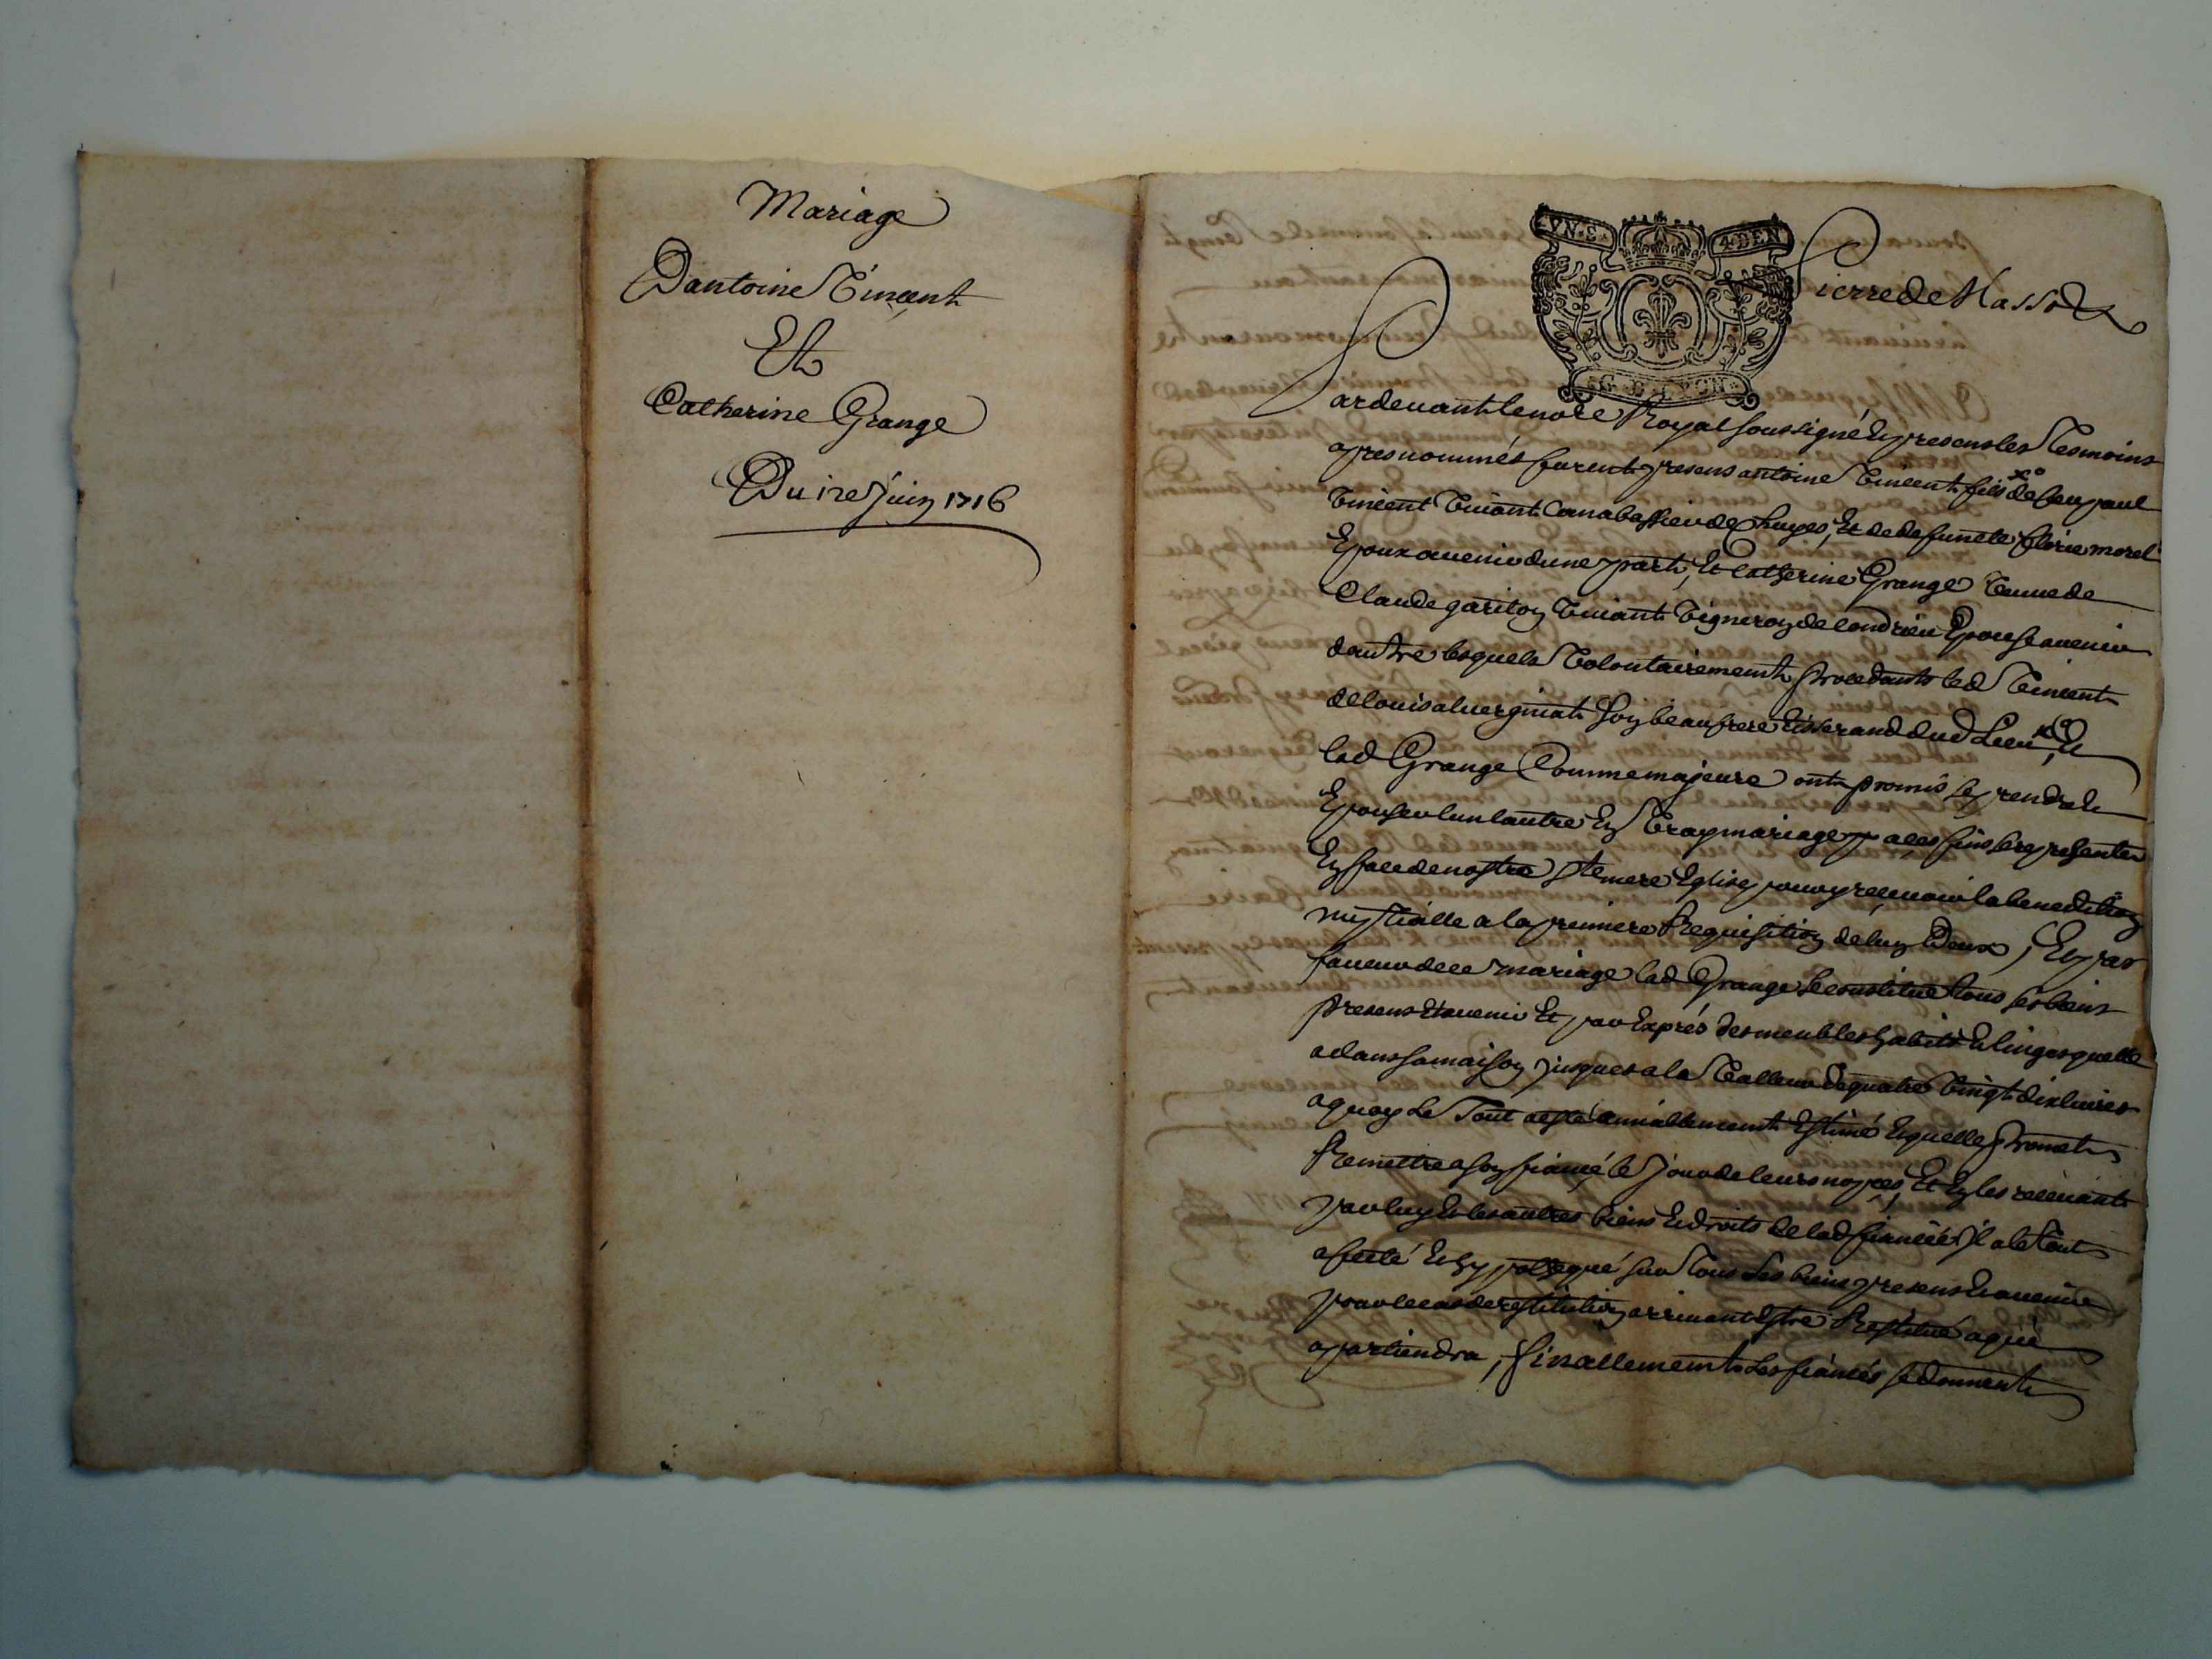 Mariage
Dantoine Vincent
Et
Catherine Grange
Du 12e Juin 1716
VN.S.
4.DEN
G.D.LYON
Pierre de Masso
Pardevant le nore Royal soussigné Et presens les Tesmoins
apres nommés furent presens antoine Vincent fils xo de feu paul
Vincent vivant de Chuyes, Et de defuncte florie morel
Epoux avenir dune part, Et Catherine Grange veuve de
Claude gariton vivant vigneron de condrieu Epouse avenir
dautre lesquels volontairement procedants led Vincent
de louis son beaufrere tisserand dud Lieu, Et
lad Grange Comme majeure ont promis se prendre Et
Epouser lun lautre En vray mariage a ces fins se representer
En face de nostre ste mere Eglise pour y recevoir la benediction
nuptialle a la premiere Requisition de luy Deux, Et par
faveur de ce mariage lad Grange se constitue tous ses biens
presens Et avenir Et par Exprés des meubles habits Et linges quelle
a dans sa maison jusques a la valleur de quatre vingt dix livres
a quoy Le Tout a esté amiablement Estimé Et quelle promet
Remettre a son fiancé le jour de leurs nopces, Et En les recevant
par luy Et les autres biens Et droits de lad fiancée Il a le tout
affecté Et hypothequé sur tous ses biens presens Et avenir
pour le cas de restitution arrivant Estre Restitué a qui
apartiendra, finallement Les fiancés se donnent